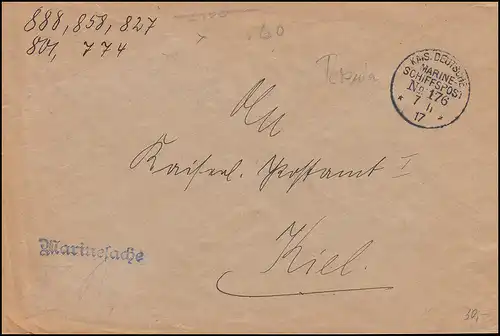 888, 858, 827
801, 774
KAIS. DEUTSCHE
MARINE-
SCHIFFSPOST
No 176
* 7 11 *
17
An
Kaiserl. Postamt I
Kiel.
Marinesache
30,-